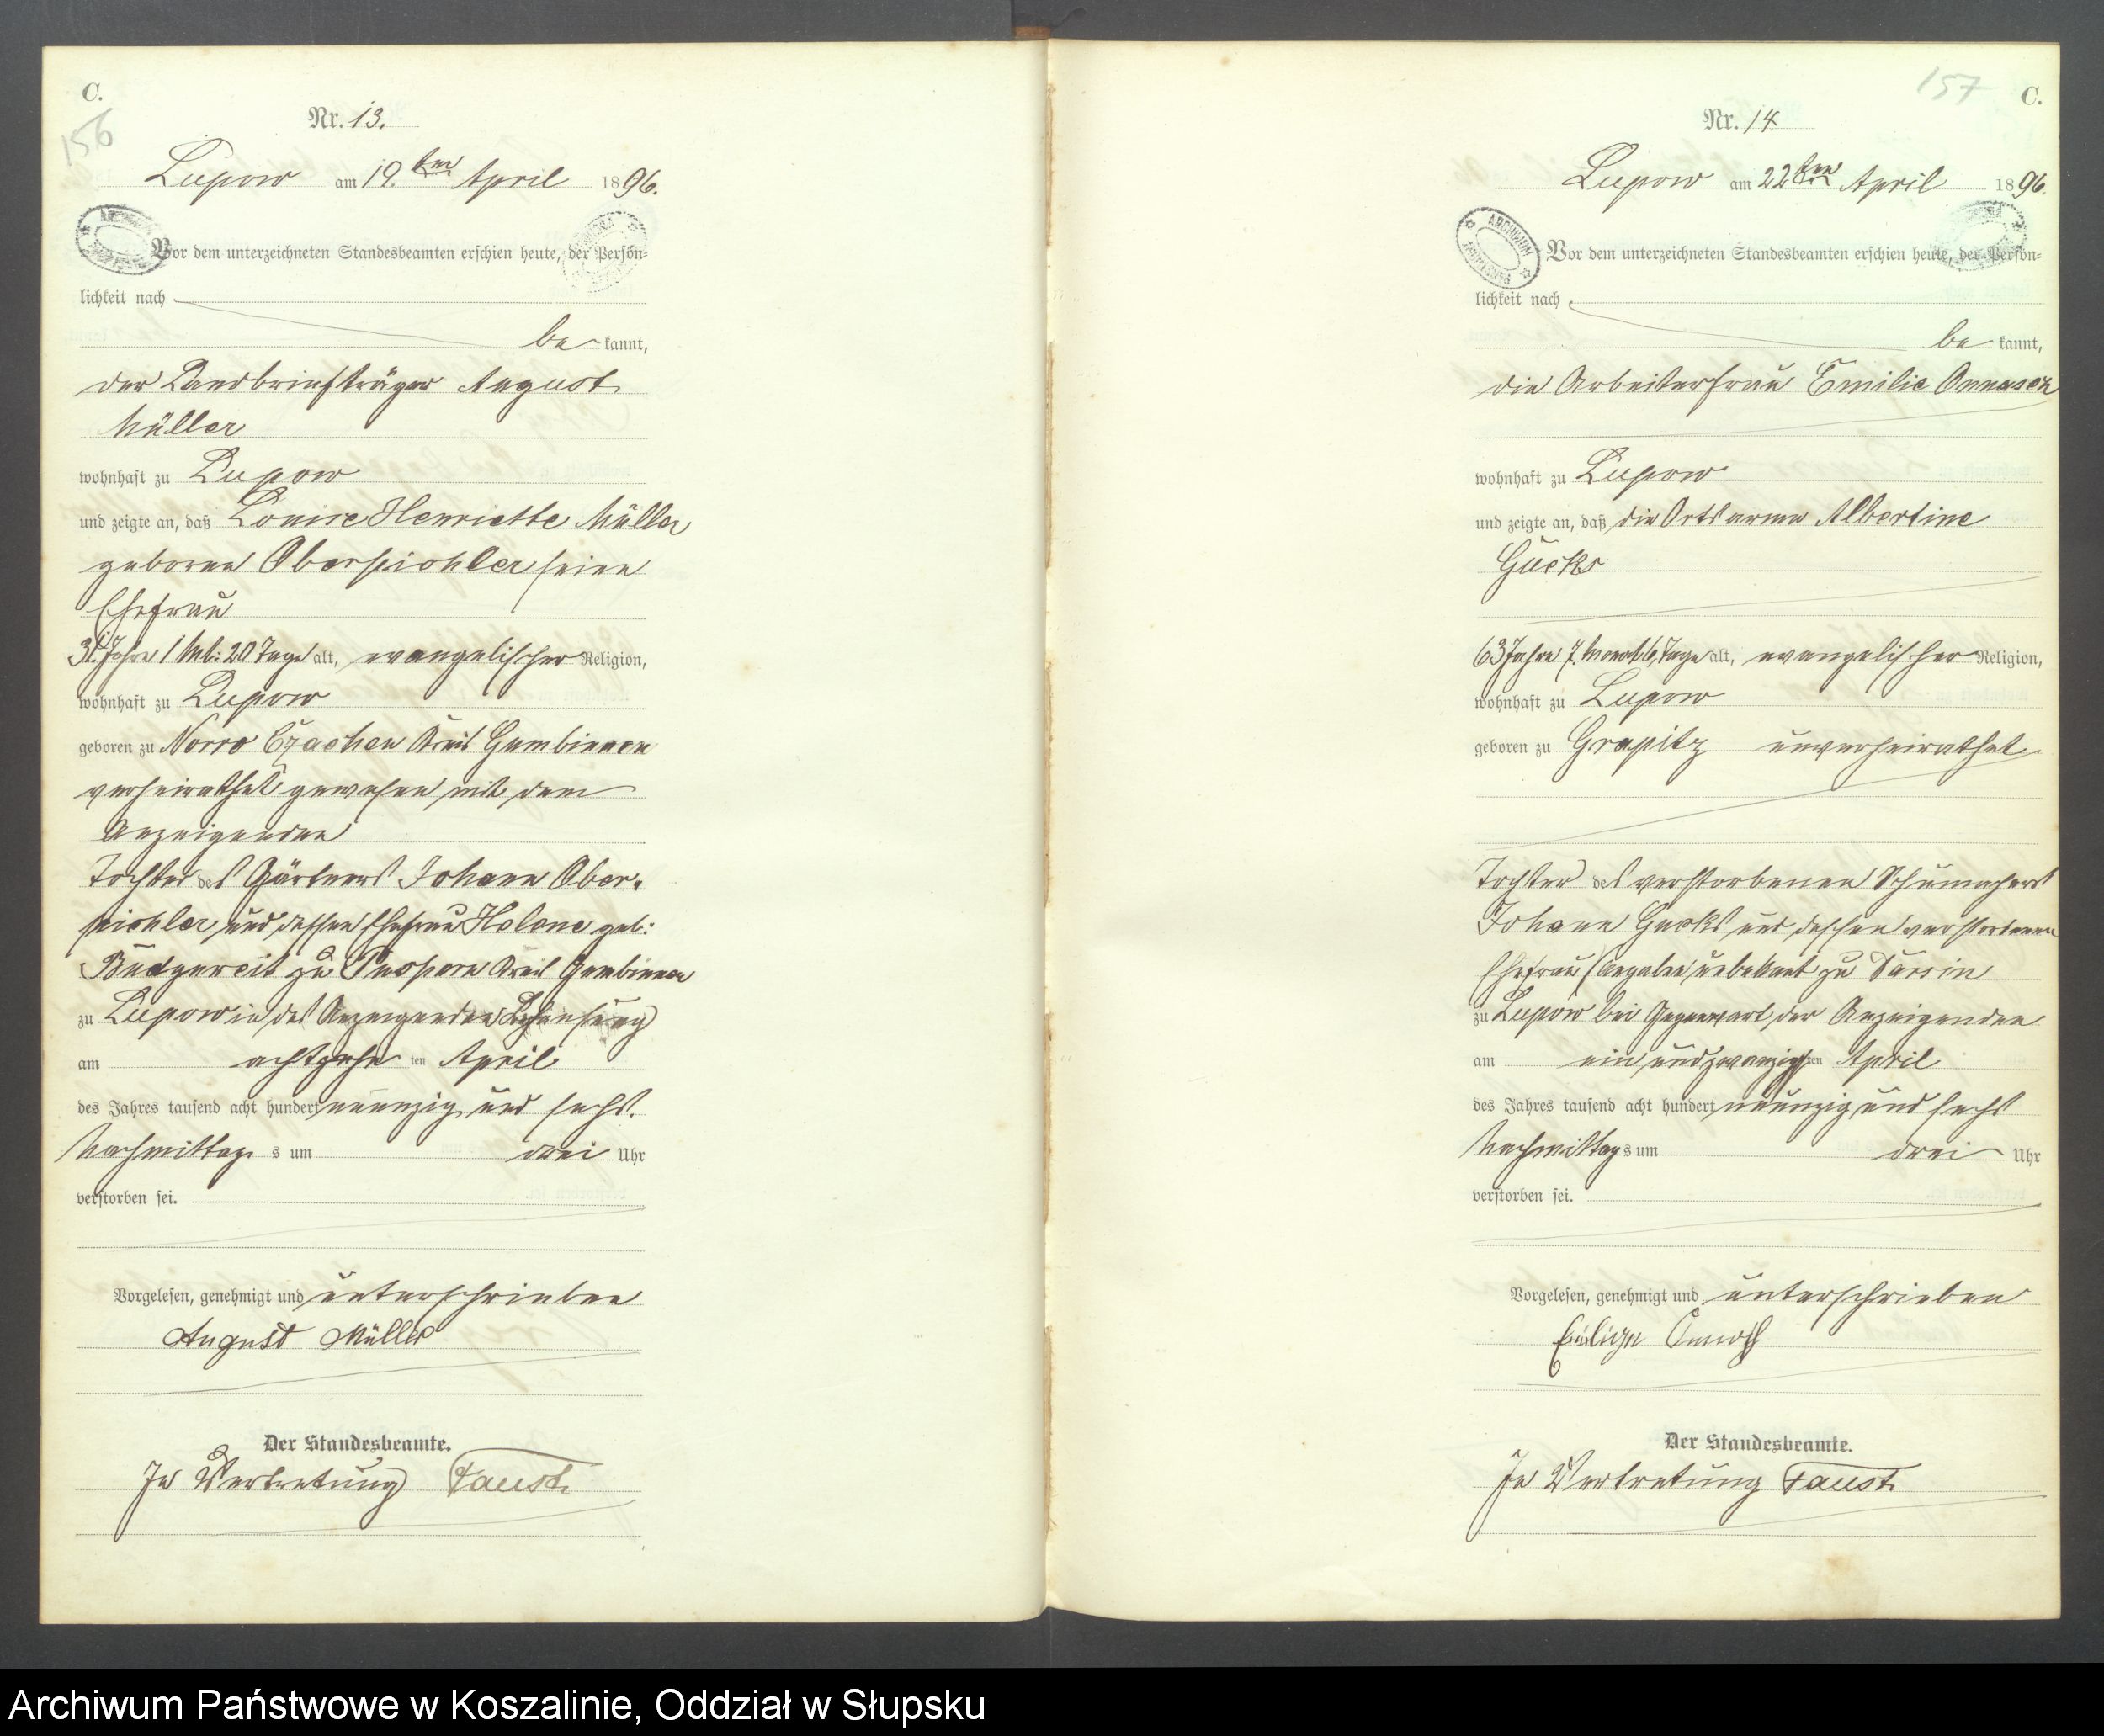 C.
156
Nr. 13.
Lupow am 19.ten April 1896.
Vor dem unterzeichneten Standesbeamten erschien heute, der Persön-
lichkeit nach
be kannt,
der Landbriefträger August
Müller
wohnhaft zu Lupow
und zeigte an, daß Louise Henriette Müller
geborene Oberpichler seine
Ehefrau
31. Jahre 1 Mt: 20 Tage alt, evangelischer Religion,
wohnhaft zu Lupow
geboren zu Norro Czachen Kreis Gumbinnen
verheirathet gewesen mit dem
Anzeigenden
Tochter des Gärtners Johann Ober-
pichler und dessen Ehefrau Helene geb:
zu Puspern Kreis Gumbinnen
zu Lupow in des Anzeigenden Behausung
am achtzehn ten April
des Jahres tausend acht hundert neunzig und sechs.
Nachmittag s um drei Uhr
verstorben sei.
Vorgelesen, genehmigt und unterschrieben
August Müller
Der Standesbeamte.
In Vertretung Faust.
157
C.
Nr. 14
Lupow am 22ten April 1896.
ARCHIWUM
Vor dem unterzeichneten Standesbeamten erschien heute, der Persön-
lichkeit nach
be kannt,
die Arbeiterfrau Emilie Onnasch
wohnhaft zu Lupow
und zeigte an, daß die Ortsarme Albertine
Gücks
63 Jahre 7. Monat 6, Tage alt, evangelischer Religion,
wohnhaft zu Lupow
geboren zu Grapitz unverheirathet
Tochter des verstorbenen Schumachers
Johann Gucks und dessen verstorbenen
Ehefrau (Angaben unbekant zu Darsin
zu Lupow bei Gegenwart der Anzeigenden
am ein und zwanzigsten April
des Jahres tausend acht hundert neunzig und sechs
Nachmittags um drei Uhr
verstorben sei.
Vorgelesen, genehmigt und unterschrieben
Emilige Onnasch
Der Standesbeamte.
In Vertretung Faust.
Archiwum Państwowe w Koszalinie, Oddział w Słupsku